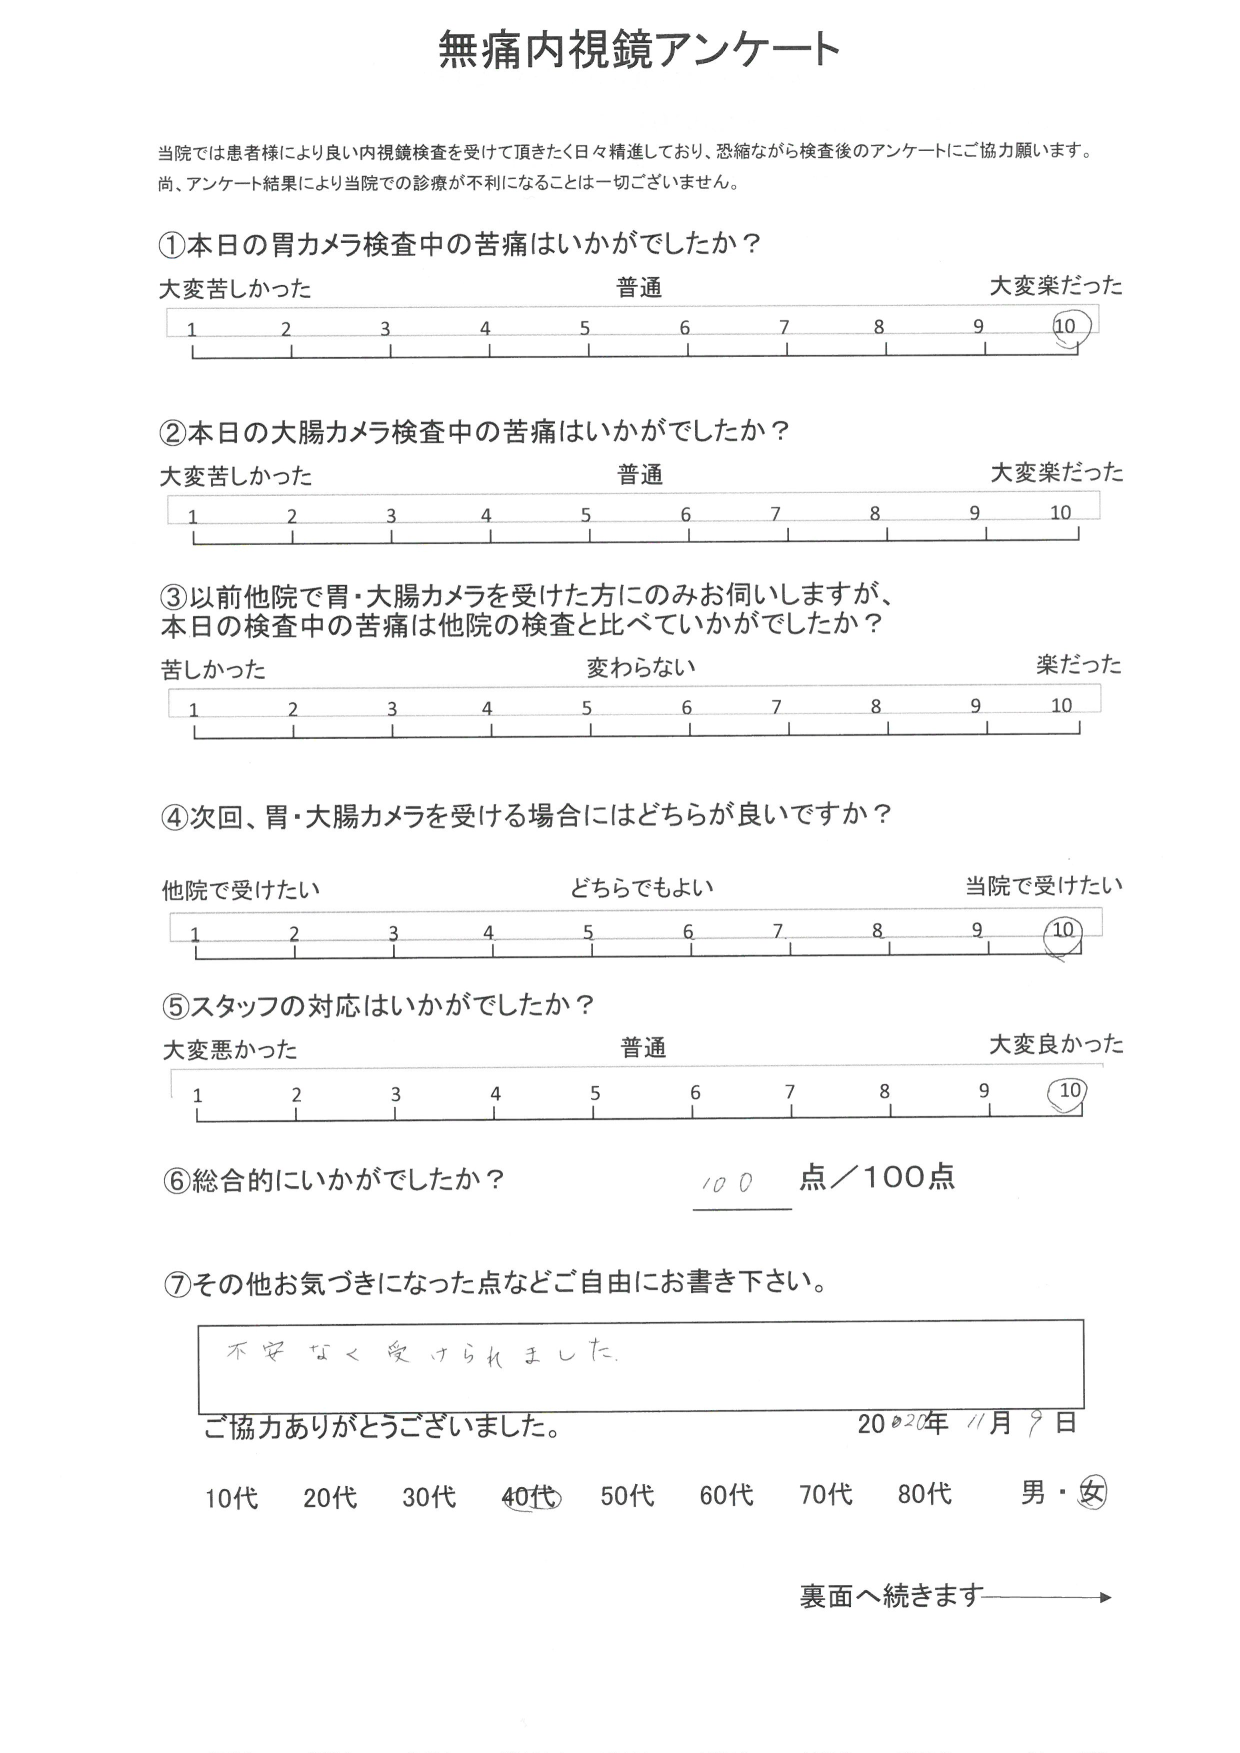 無痛内視鏡アンケート
当院では患者様により良い内視鏡検査を受けて頂きたく日々精進しており、恐縮ながら検査後のアンケートにご協力願います。
尚、アンケート結果により当院での診療が不利になることは一切ございません。
①本日の胃カメラ検査中の苦痛はいかがでしたか？
大変苦しかった 普通 大変楽だった
1 2 3 4 5 6 7 8 9 10
②本日の大腸カメラ検査中の苦痛はいかがでしたか？
大変苦しかった 普通 大変楽だった
1 2 3 4 5 6 7 8 9 10
③以前他院で胃・大腸カメラを受けた方にのみお伺いしますが、
本日の検査中の苦痛は他院の検査と比べていかがでしたか？
苦しかった 変わらない 楽だった
1 2 3 4 5 6 7 8 9 10
④次回、胃・大腸カメラを受ける場合にはどちらが良いですか？
他院で受けたい どちらでもよい 当院で受けたい
1 2 3 4 5 6 7 8 9 10
⑤スタッフの対応はいかがでしたか？
大変悪かった 普通 大変良かった
1 2 3 4 5 6 7 8 9 10
⑥総合的にいかがでしたか？ 100 点／100点
⑦その他お気づきになった点などご自由にお書き下さい。
不安なく受けられました.
ご協力ありがとうございました。 20 20年 11月 9日
10代 20代 30代 40代 50代 60代 70代 80代 男・女
裏面へ続きます